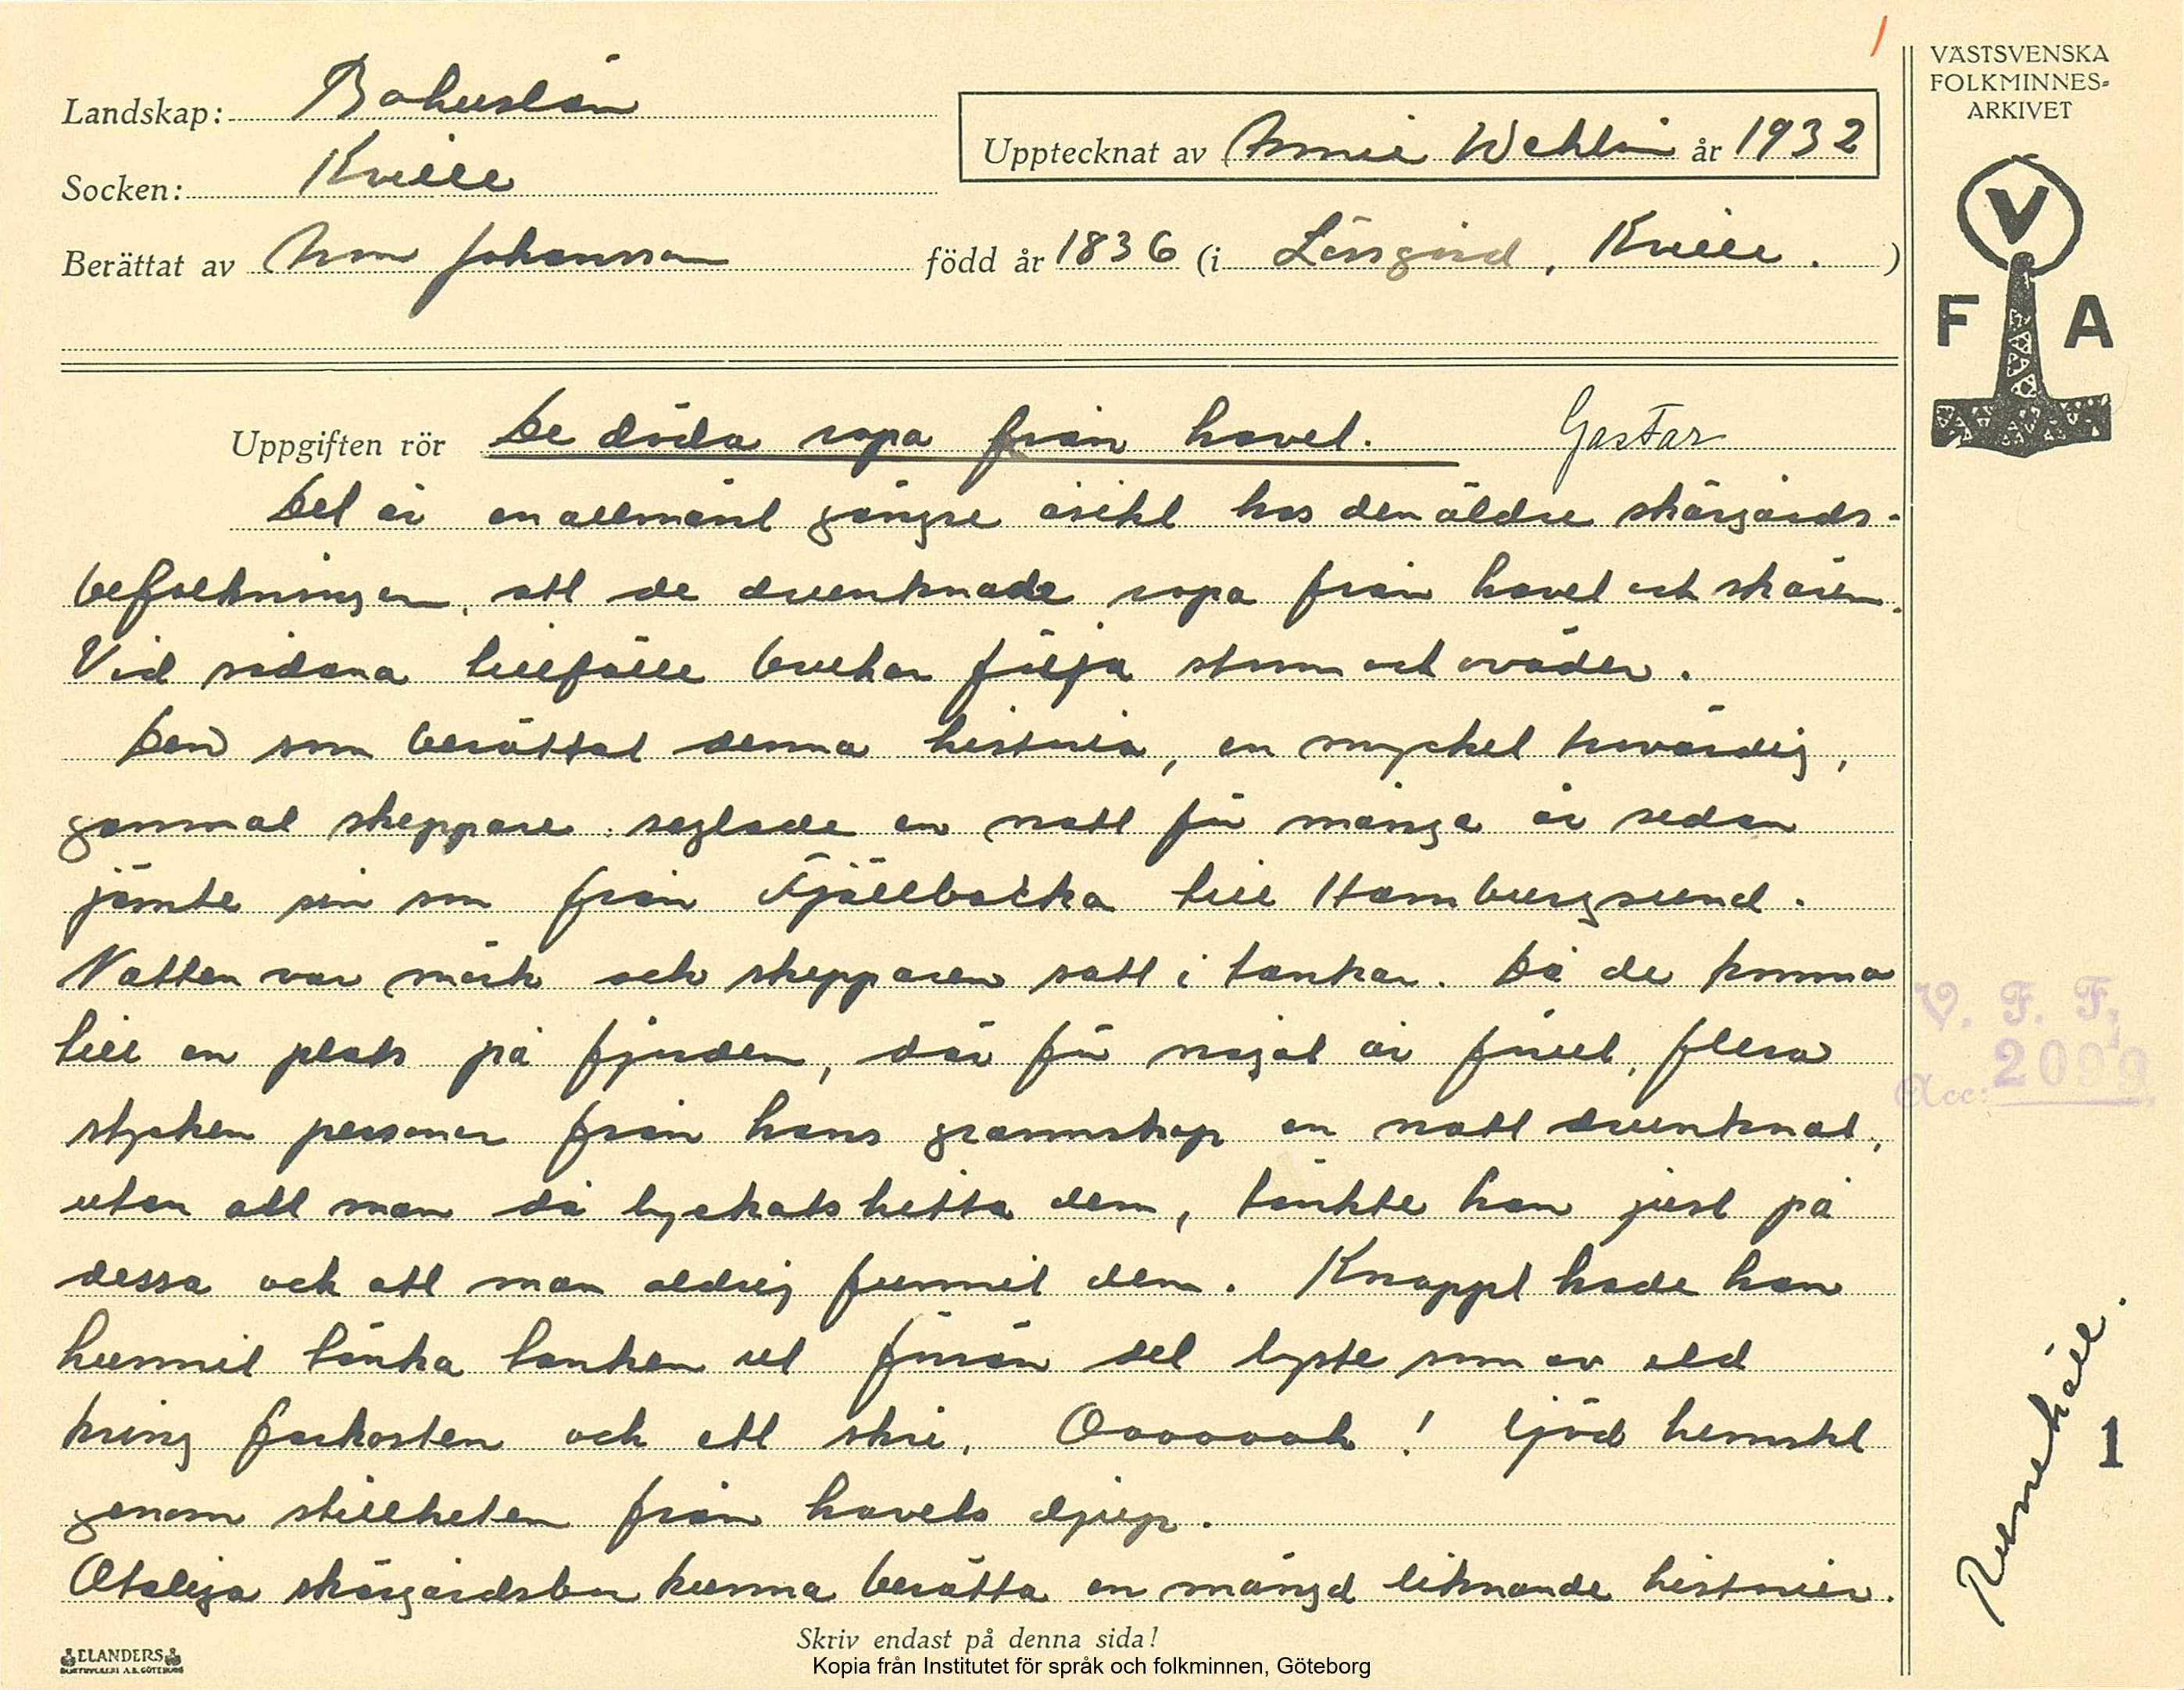 VÄSTSVENSKA
FOLKMINNES-
ARKIVET
Landskap: Bohuslän
Upptecknat av Annie Wehlin år 1932
Socken: Kville
Berättat av Aron Johansson född år 1836 (i Kville.)
V
F A
Uppgiften rör De döda ropa från havet. Gastar
Det är en allmänt gängse åsikt hos den äldre skärgårds-
befolkningen, att de drunknade ropa från havet och skären.
Vid sådana tillfälle brukar följa storm och oväder.
Den som berättat denna historia, en mycket trovärdig,
gammal skeppare seglade en natt för många år sedan
jämte sin son från Fjällbacka till Hamburgsund.
Natten var mörk och skepparen satt i tankar. Då de komma
till en plats på fjorden, där för något år förut, flera
stycken personer från hans grannskap en natt drunknat,
utan att man då lyckats hitta dem, tänkte han just på
dessa och att man aldrig funnit dem. Knappt hade han
hunnit tänka tanken ut förrän det lyste som av eld
kring farkosten och ett skri, Oooooooh! ljöd hemskt
genom stillheten från havets djup.
Otaliga skärgårdsbor kunna berätta en mängd liknande historier.
V. F. F.
Acc: 2099
1
Skriv endast på denna sida!
ELANDERS
BOKTRYCKERI A.B. GÖTEBORG
Kopia från Institutet för språk och folkminnen, Göteborg